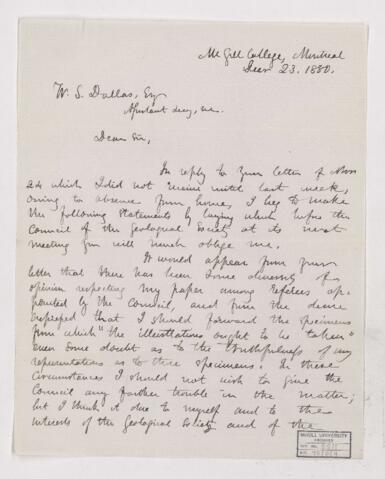 McGill College, Montreal
Decr 23. 1880.
W. S. Dallas, Esq
Assistant Secy, &c.
Dear Sir,
In reply to your letter of Novr
24 which I did not receive until last week,
owing to absence from home, I beg to make
the following statements by laying which before the
Council of the Geological Society at its next
meeting you will much oblige me.
It would appear from your
letter that there has been some diversity of
opinion respecting my paper among referees ap-
pointed by the Council, and from the desire
expressed that I should forward the specimens
from which "the illustrations ought to be taken"
even some doubt as to the truthfulness of my
representations as to these specimens. In these
circumstances I should not wish to give the
Council any further trouble in the matter;
but I think it due to myself and to the
interests of the Geological Society and of the
McGILL UNIVERSITY
ARCHIVES